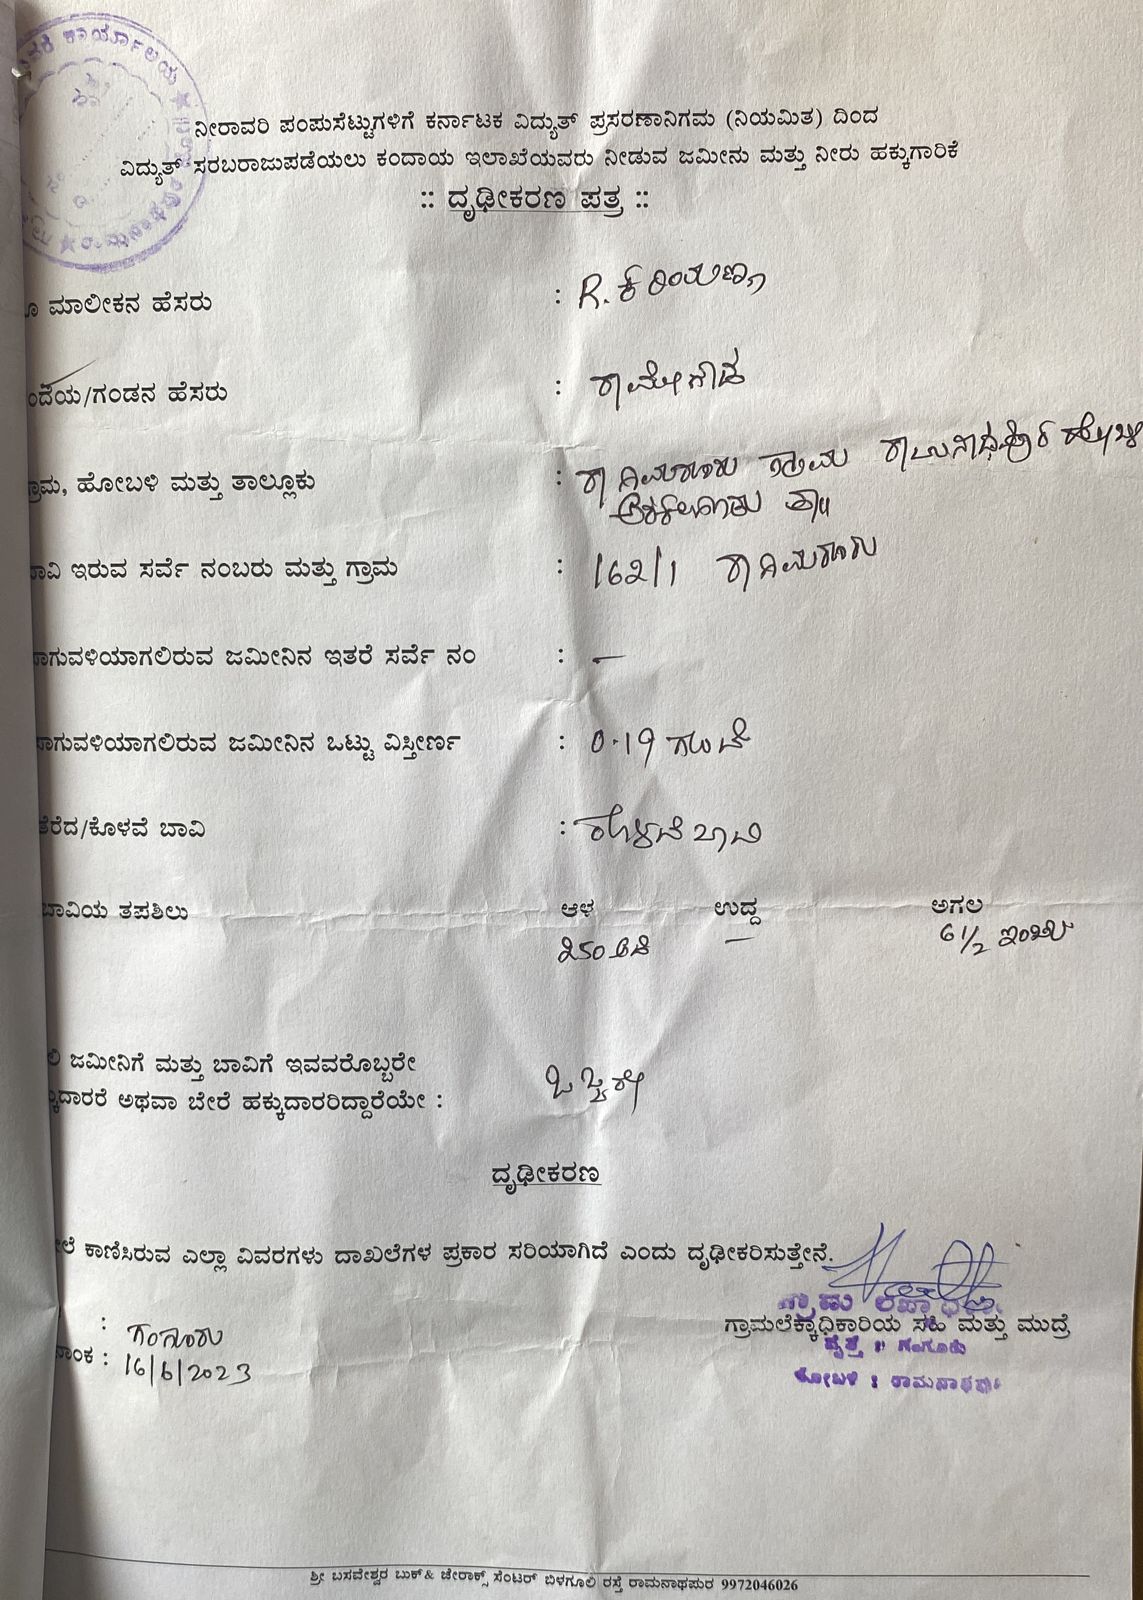 ಕಾರ್ಯಾಲಯ ★
ನೀರಾವರಿ ಪಂಪುಸೆಟ್ಟುಗಳಿಗೆ ಕರ್ನಾಟಕ ವಿದ್ಯುತ್ ಪ್ರಸರಣಾನಿಗಮ (ನಿಯಮಿತ) ದಿಂದ
ವಿದ್ಯುತ್ ಸರಬರಾಜುಪಡೆಯಲು ಕಂದಾಯ ಇಲಾಖೆಯವರು ನೀಡುವ ಜಮೀನು ಮತ್ತು ನೀರು ಹಕ್ಕುಗಾರಿಕೆ
:: ದೃಢೀಕರಣ ಪತ್ರ ::
ಮಾಲೀಕನ ಹೆಸರು : R. ಕರಿಯಣ್ಣ
ಂದೆಯ/ಗಂಡನ ಹೆಸರು : ರಾಮೇಗೌಡ
ಹೋಬಳಿ ಮತ್ತು ತಾಲ್ಲೂಕು : ಗ್ರಾಮ ರಾಮನಾಥಪುರ ಹೋಬಳಿ
ಅರಕಲಗೂಡು ತಾ||
ಇರುವ ಸರ್ವೆ ನಂಬರು ಮತ್ತು ಗ್ರಾಮ : 162/1
ಾಗುವಳಿಯಾಗಲಿರುವ ಜಮೀನಿನ ಇತರೆ ಸರ್ವೆ ನಂ : —
ಾಗುವಳಿಯಾಗಲಿರುವ ಜಮೀನಿನ ಒಟ್ಟು ವಿಸ್ತೀರ್ಣ : 0-19 ಗುಂಟೆ
ತೆರೆದ/ಕೊಳವೆ ಬಾವಿ : ಕೊಳವೆ ಬಾವಿ
ಬಾವಿಯ ತಪಶಿಲು ಆಳ ಉದ್ದ ಅಗಲ
250 ಅಡಿ — 6 1/2 ಇಂಚು
ಜಮೀನಿಗೆ ಮತ್ತು ಬಾವಿಗೆ ಇವವರೊಬ್ಬರೇ
ಕ್ಕುದಾರರೆ ಅಥವಾ ಬೇರೆ ಹಕ್ಕುದಾರರಿದ್ದಾರೆಯೇ : ಒಬ್ಬರೇ
ದೃಢೀಕರಣ
ಕಾಣಿಸಿರುವ ಎಲ್ಲಾ ವಿವರಗಳು ದಾಖಲೆಗಳ ಪ್ರಕಾರ ಸರಿಯಾಗಿದೆ ಎಂದು ದೃಢೀಕರಿಸುತ್ತೇನೆ.
: ಗಂಗೂರು
ನಾಂಕ : 16/6/2023
ಗ್ರಾಮ
ಗ್ರಾಮಲೆಕ್ಕಾಧಿಕಾರಿಯ ಸಹಿ ಮತ್ತು ಮುದ್ರೆ
ವೃತ್ತ : ಗಂಗೂರು
ಹೋಬಳಿ : ರಾಮನಾಥಪು
ಶ್ರೀ ಬಸವೇಶ್ವರ ಬುಕ್ & ಜೇರಾಕ್ಸ್ ಸೆಂಟರ್ ಬಿಳಗೂಲಿ ರಸ್ತೆ ರಾಮನಾಥಪುರ 9972046026